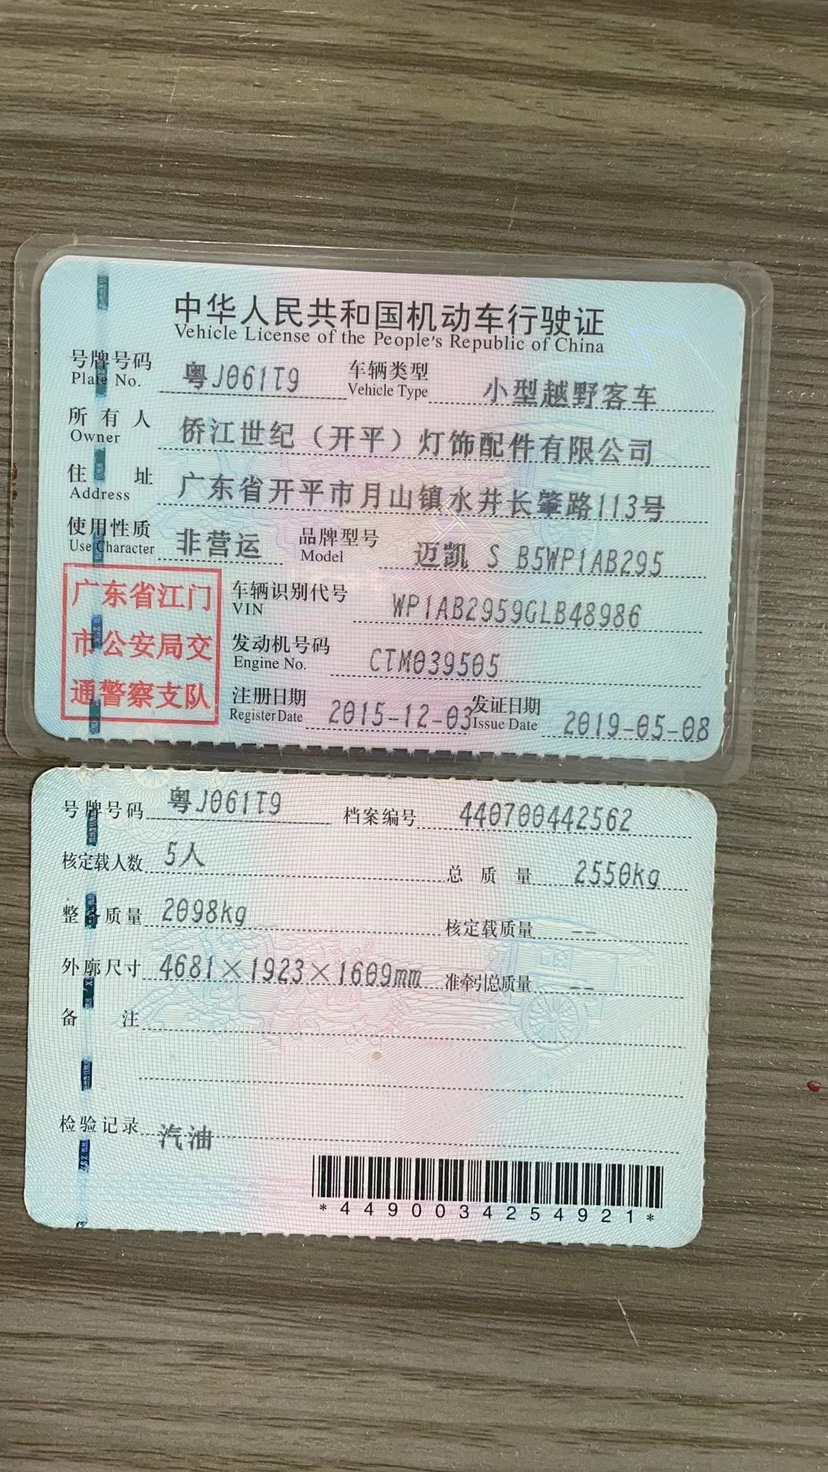 中华人民共和国机动车行驶证
Vehicle License of the People's Republic of China
号牌号码 粤J061T9 车辆类型 小型越野客车
Plate No. Vehicle Type
所有人 侨江世纪（开平）灯饰配件有限公司
Owner
住址 广东省开平市月山镇水井长肇路113号
Address
使用性质 非营运 品牌型号 迈凯 S B5WP1AB295
Use Character Model
广东省江门
市公安局交
通警察支队
车辆识别代号 WP1AB2959GLB48986
VIN
发动机号码 CTM039505
Engine No.
注册日期 2015-12-03 发证日期 2019-05-08
Register Date Issue Date
号牌号码 粤J061T9 档案编号 440700442562
核定载人数 5人 总质量 2550kg
整备质量 2098kg 核定载质量 --
外廓尺寸 4681×1923×1609mm 准牵引总质量 --
备注
检验记录 汽油
*4490034254921*